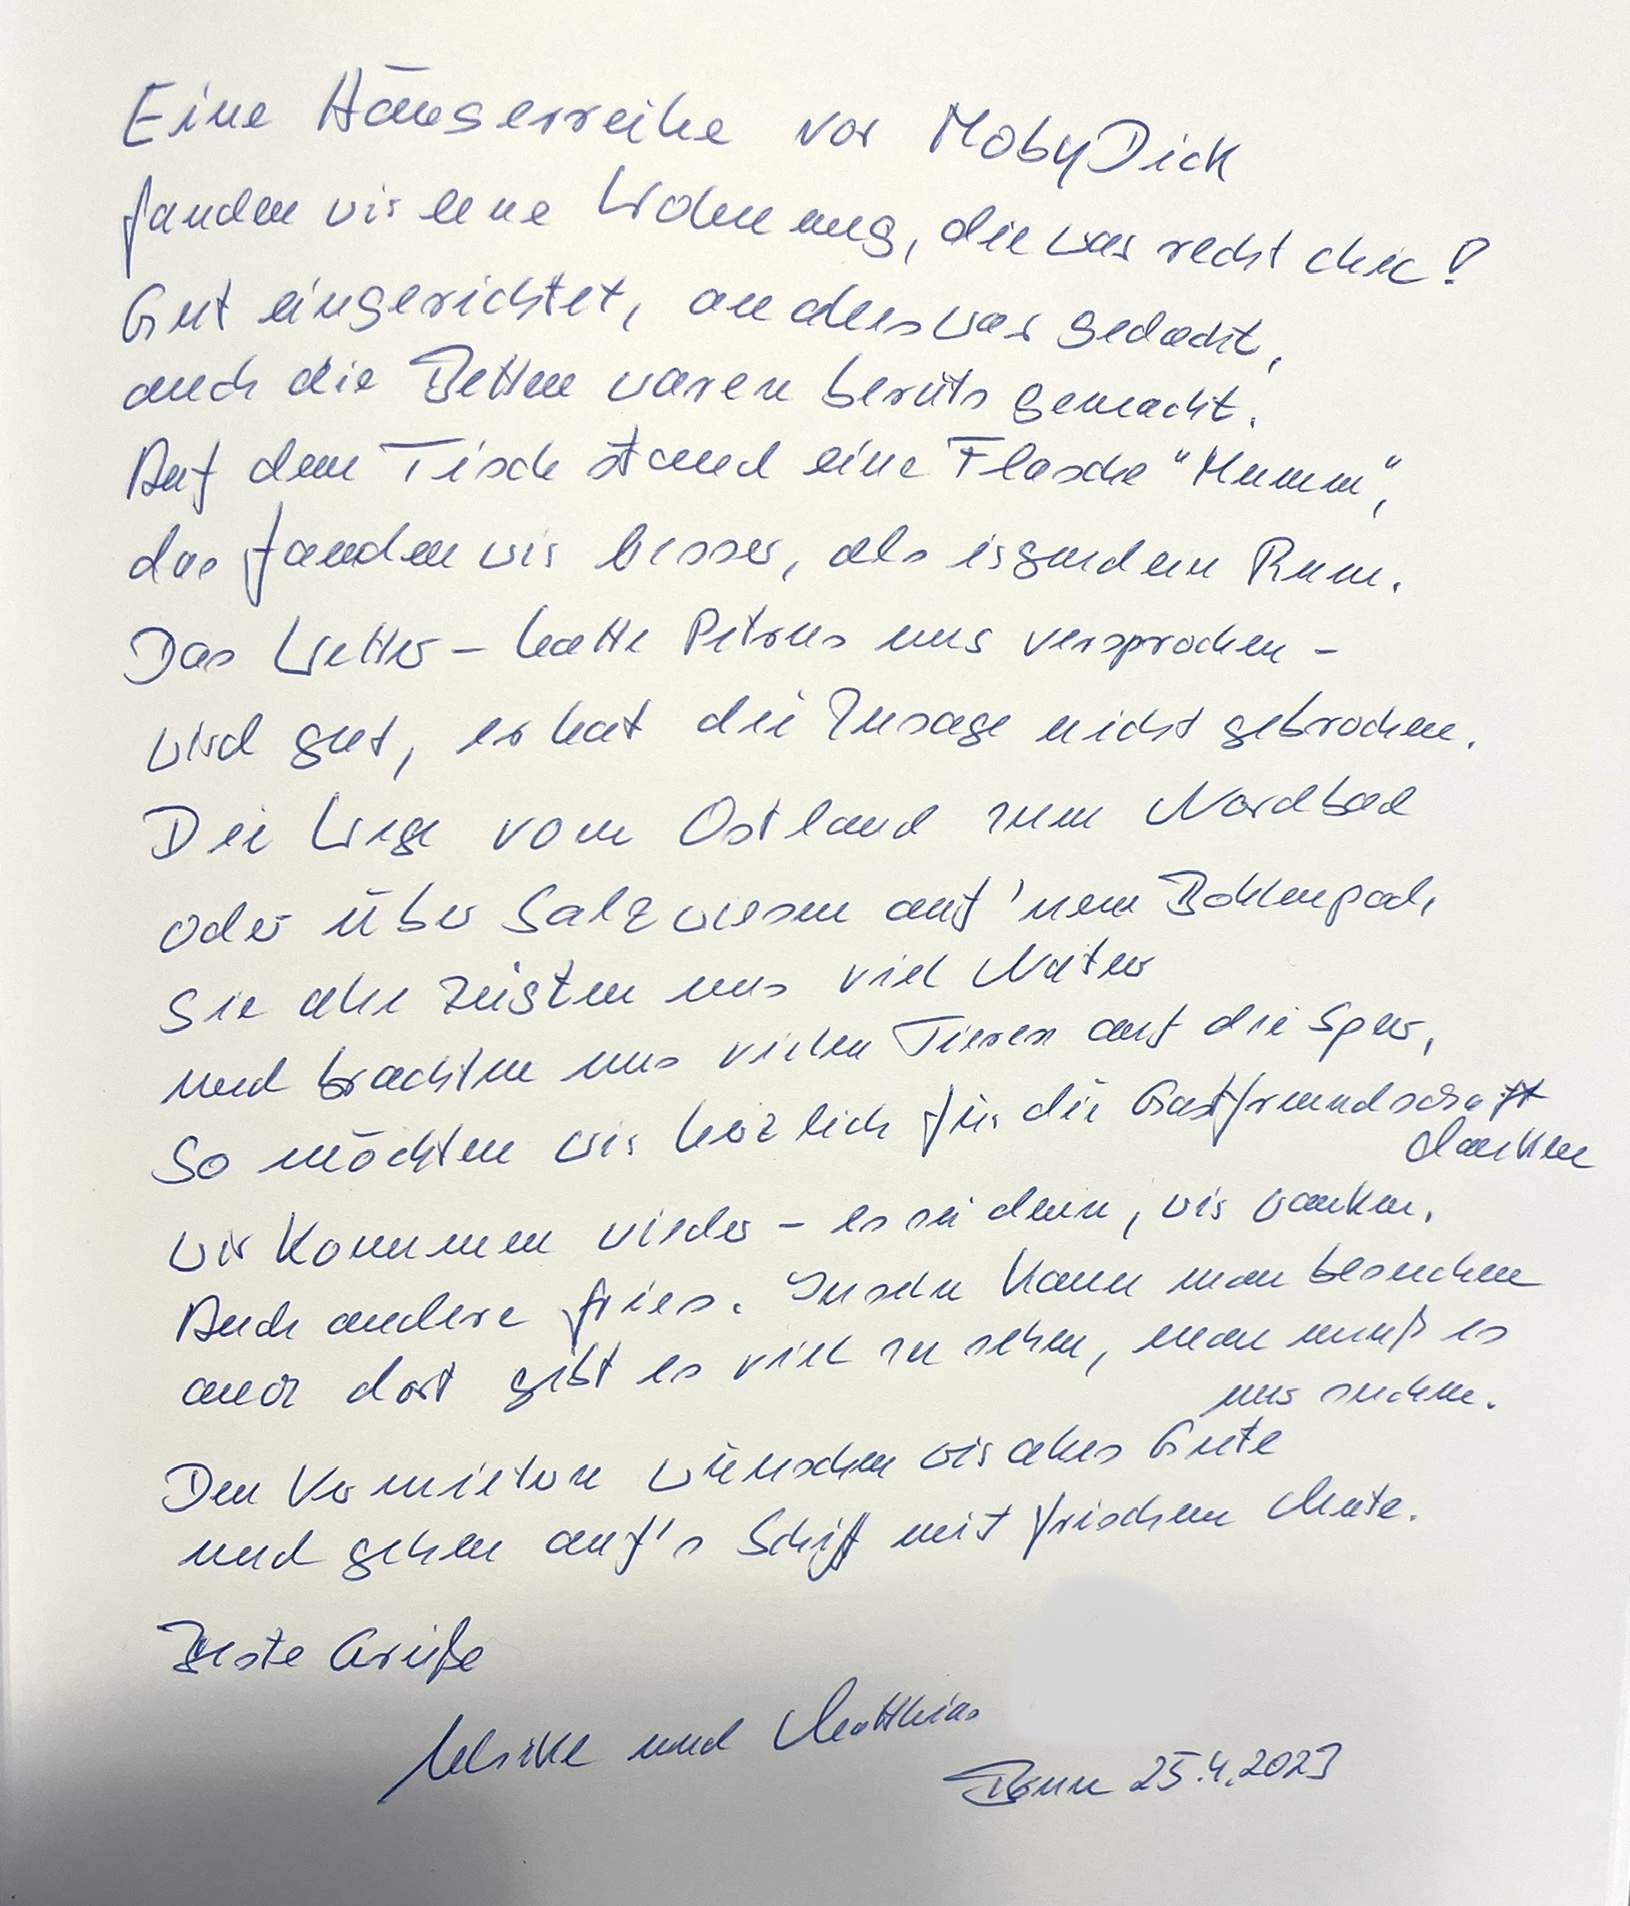 Eine Häuserreihe vor MobyDick
fanden wir eine Wohnung, die war recht chic!
Gut eingerichtet, an alles war gedacht,
auch die Betten waren bereits gemacht.
Auf dem Tisch stand eine Flasche "Mumm",
das fanden wir besser, als irgendein Rum.
Das Wetter – hatte Petrus uns versprochen –
wird gut, er hat die Zusage nicht gebrochen.
Die Wege vom Ostland zum Nordbad
oder über Salzwiesen auf 'nem Bohlenpad,
sie alle zeigten uns viel Natur
und brachten uns vielen Tieren auf die Spur,
So möchten wir herzlich für die Gastfreundschaft
danken
wir kommen wieder – es sei denn, wir wanken.
Auch andere fries. Inseln kann man besuchen
auch dort gibt es viel zu sehen, man muß es
nur suchen.
Den Vermietern wünschen wir alles Gute
und gehen auf's Schiff mit frischem Mute.
Beste Grüße
Ulrike und Matthias
Bonn 25.4.2023